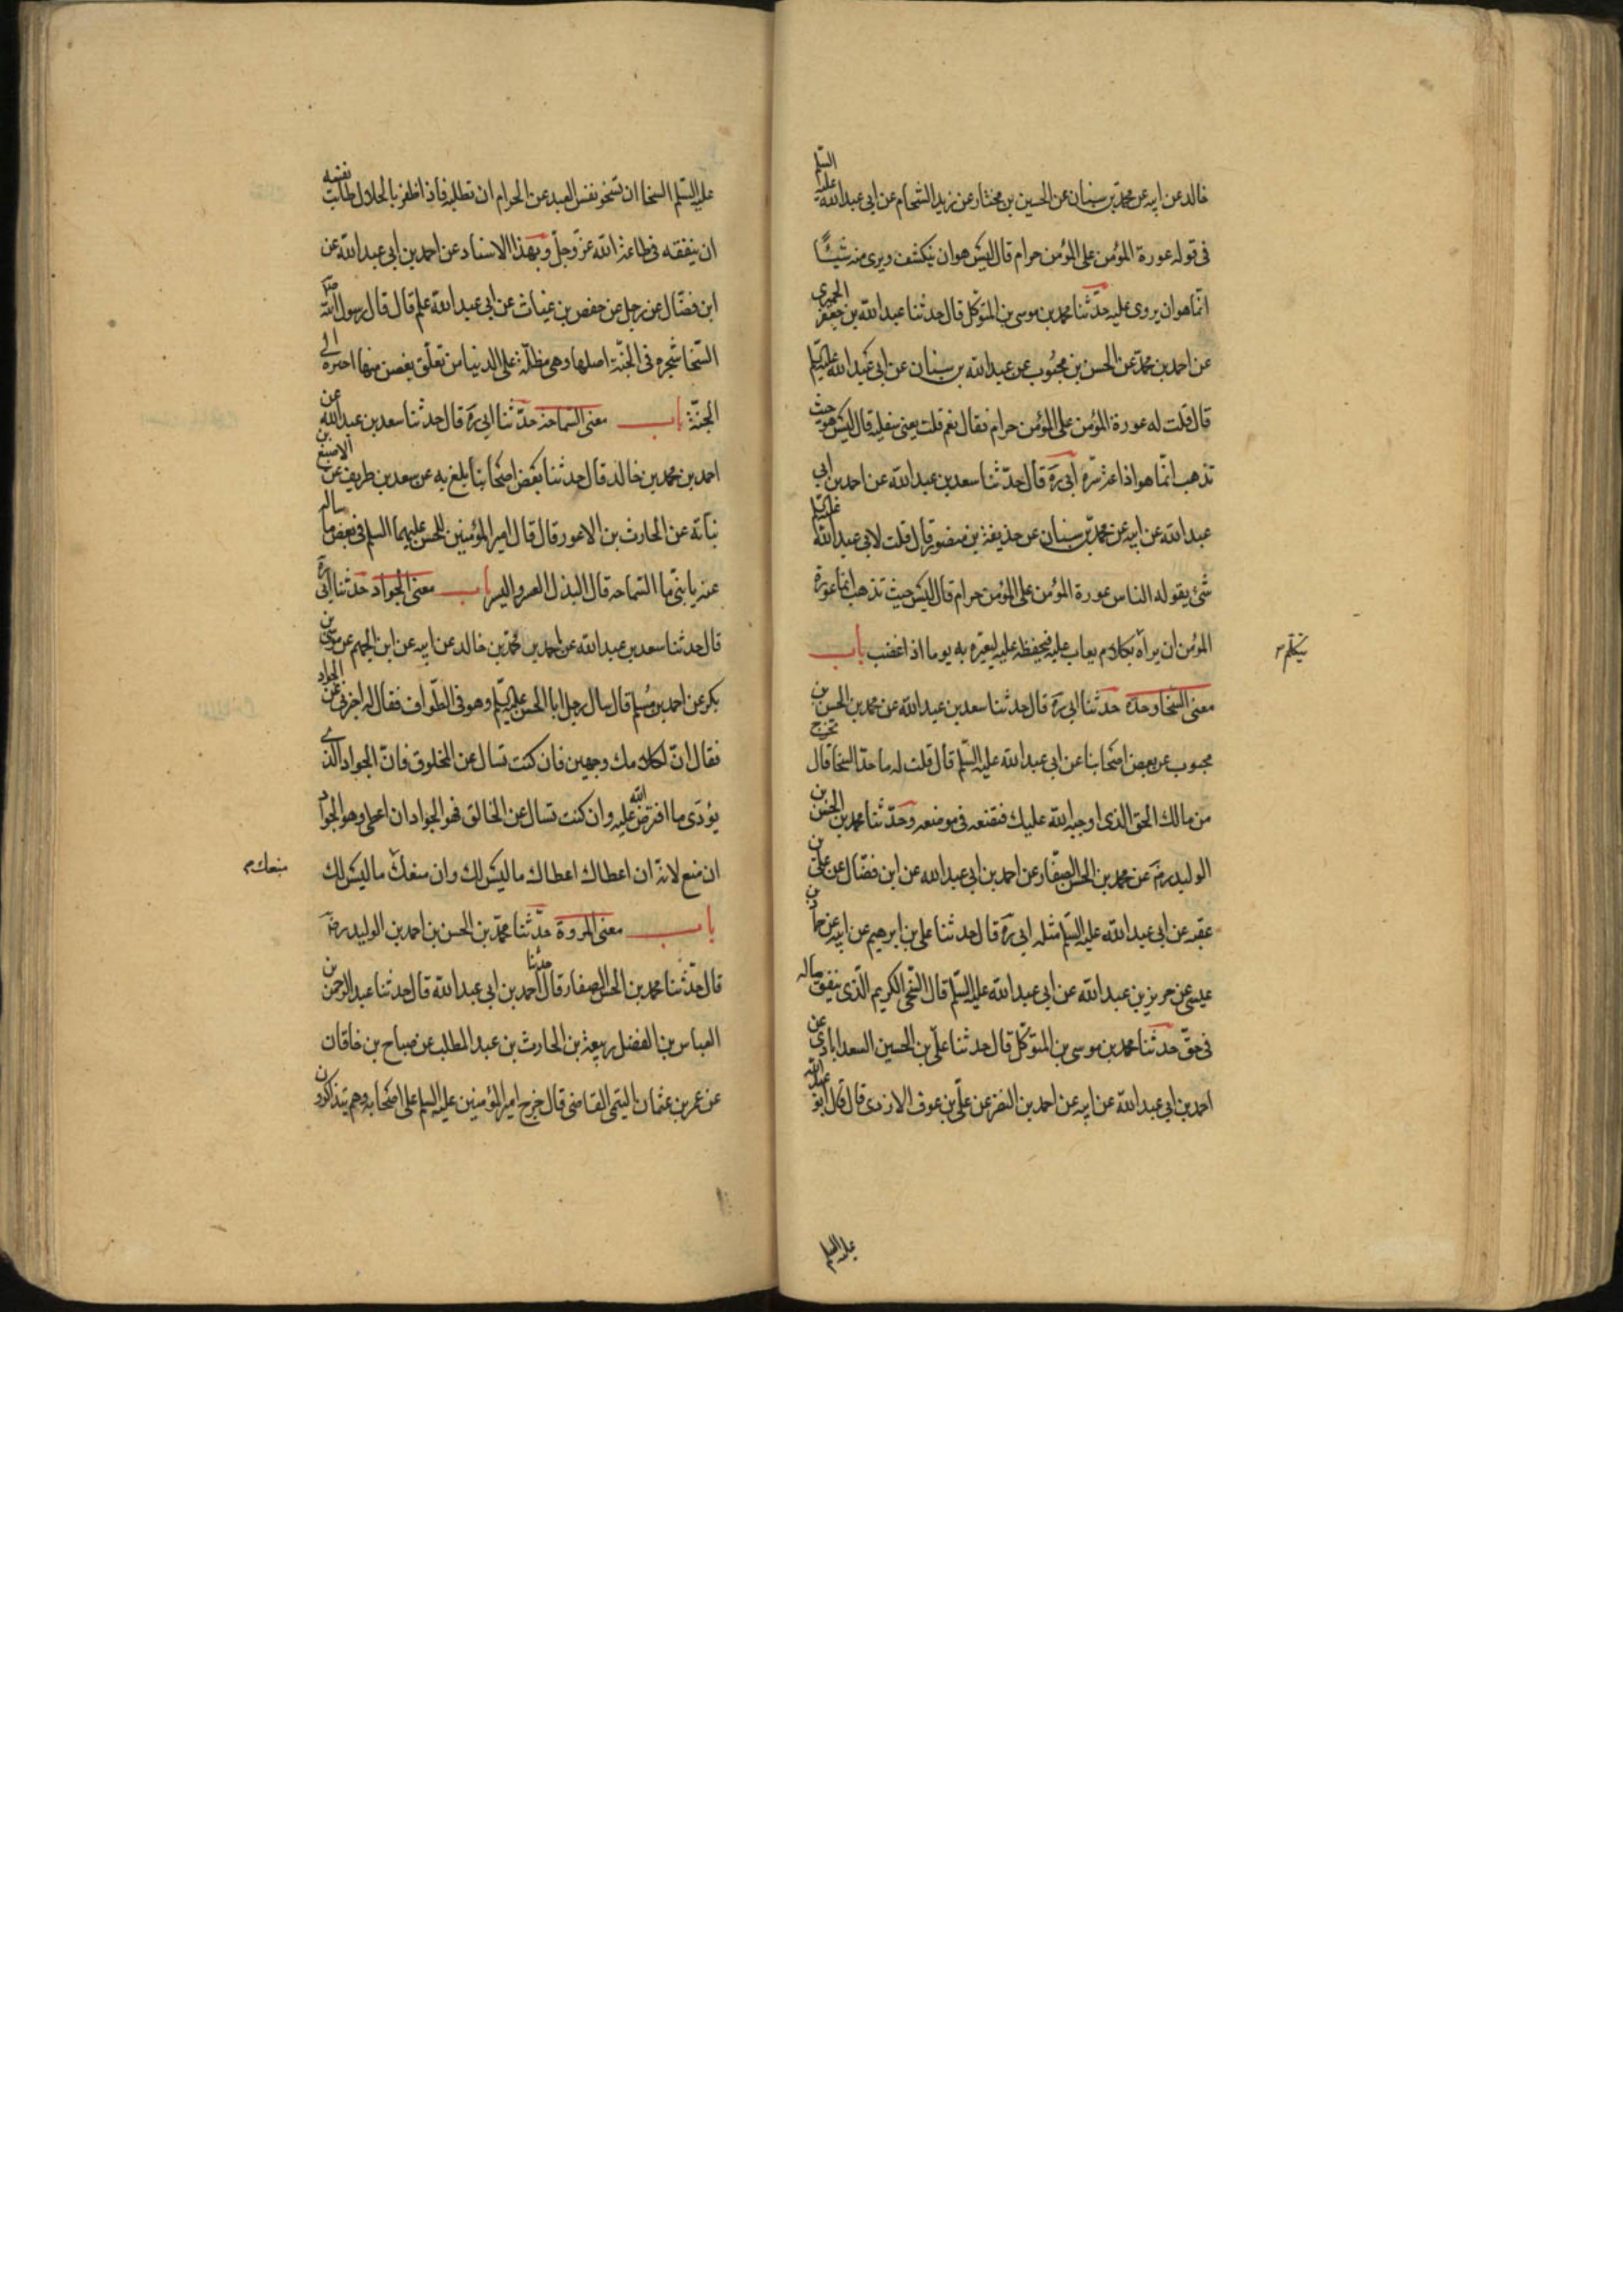 خالد عن ابيه عن محمد بن سنان عن الحسين بن مختار عن زيد الشحام عن ابي عبد الله عليه السلم
في قوله عورة المؤمن على المؤمن حرام قال ليس هو ان ينكشف ويرى منه شيئًا
انّما هو ان يروى عليه حدّثنا محمد بن موسى بن المتوكّل قال حدثنا عبد الله بن جعفر الحميري
عن احمد بن محمد عن الحسن بن محبوب عن عبد الله بن سنان عن ابي عبد الله عليه السلم
قال قلت له عورة المؤمن على المؤمن حرام فقال نعم قلت يعنى سفليه قال ليس هو حيث
تذهب انّما هو اذاعة سرّه ابي ره قال حدّثنا سعد بن عبد الله عن احمد بن ابي
عبد الله عن ابيه عن محمّد بن سنان عن حذيفة بن منصور قال قلت لابي عبد الله عليه السلم
شئ يقوله الناس عورة المؤمن على المؤمن حرام قال ليس حيث تذهب انما عورة
المؤمن ان يراه بكلام يعاب عليه فيحفظه عليه ليعيّره به يوما اذا غضب باب
يتكلّم
معنى السخا وحدّه حدثنا ابي ره قال حدثنا سعد بن عبد الله عن محمد بن الحسن بن
محبوب عن بعض اصحابنا عن ابي عبد الله عليه السّلم قال قلت له ما حدّ السخا قال تخرج
من مالك الحق الذى اوجبه الله عليك فتضعه في موضعه وحدّثنا محمد بن الحسن بن
الوليد رضَ عن محمد بن الحسن الصفّار عن احمد بن ابي عبد الله عن ابن فضّال عن علىّ بن
عقبه عن ابي عبد الله عليه السلم مثله ابي ره قال حدثنا على بن ابرهيم عن ابيه عن حماد بن
عيسى عن حريز بن عبد الله عن ابي عبد الله عليه السّلم قال السّخى الكريم الّذى ينفق ماله
في حقّ حدثنا محمد بن موسى بن المتوكّل قال حدثنا علىّ بن الحسين السعدابادي عن
احمد بن ابي عبد الله عن ابيه عن احمد بن النضر عن علىّ بن عوف الازدى قال قال ابو عبد الله
عليه السلم
عليه السّلم السخا ان تسخو نفس العبد عن الحرام ان تطلبه فاذا ظفر بالحلال طابت نفسه
ان ينفقه في طاعة الله عزّ وجلّ وبهذا الاسناد عن احمد بن ابي عبد الله عن
ابن فضّال عن رجل عن حفص بن غياث عن ابي عبد الله علم قال قال رسول الله صلَ
السّخا شجره فى الجنّة اصلها وهى مظلّة على الدنيا من تعلّق بغصن منها اجتره الى
الجنّة باب معنى السّماحة حدّثنا ابي ره قال حدثنا سعد بن عبد الله عن
احمد بن محمد بن خالد قال حدثنا بعض اصحابنا بلغ به عن سعد بن طريف عن الاصبغ بن
نباته عن الحارث بن الاعور قال قال امير المؤمنين للحسن عليهما السلم في بعض ما ساله
عنه يا بنىّ ما السّماحه قال البذل في العسر واليسر باب معنى الجواد حدّثنا ابي ره
قال حدثنا سعد بن عبد الله عن احمد بن محمّد بن خالد عن ابيه عن ابن الجهم عن موسى بن
بكر عن احمد بن مسلم قال سال رجل ابا الحسن عليه السلم وهو فى الطّواف فقال له اخبرنى عن الجواد
فقال انّ لكلامك وجهين فان كنت تسال عن المخلوق فانّ الجواد الّذى
يؤدى ما افترض الله عليه وان كنت تسال عن الخالق فهو الجواد ان اعطى وهو الجواد
ان منع لانه ان اعطاك اعطاك ما ليس لك وان منعك ما ليس لك
منعك
باب معنى المروة حدّثنا محمّد بن الحسن بن احمد بن الوليد رضَ
قال حدّثنا محمد بن الحسن الصفار قال حدثنا احمد بن ابي عبد الله قال حدثنا عبد الرحمن بن
العباس بن الفضل ربيعة بن الحارث بن عبد المطلب عن صباح بن خاقان
عن عمر بن عثمان التيمى القاضى قال خرج امير المؤمنين عليه السلم على اصحابه وهم يتذاكرون